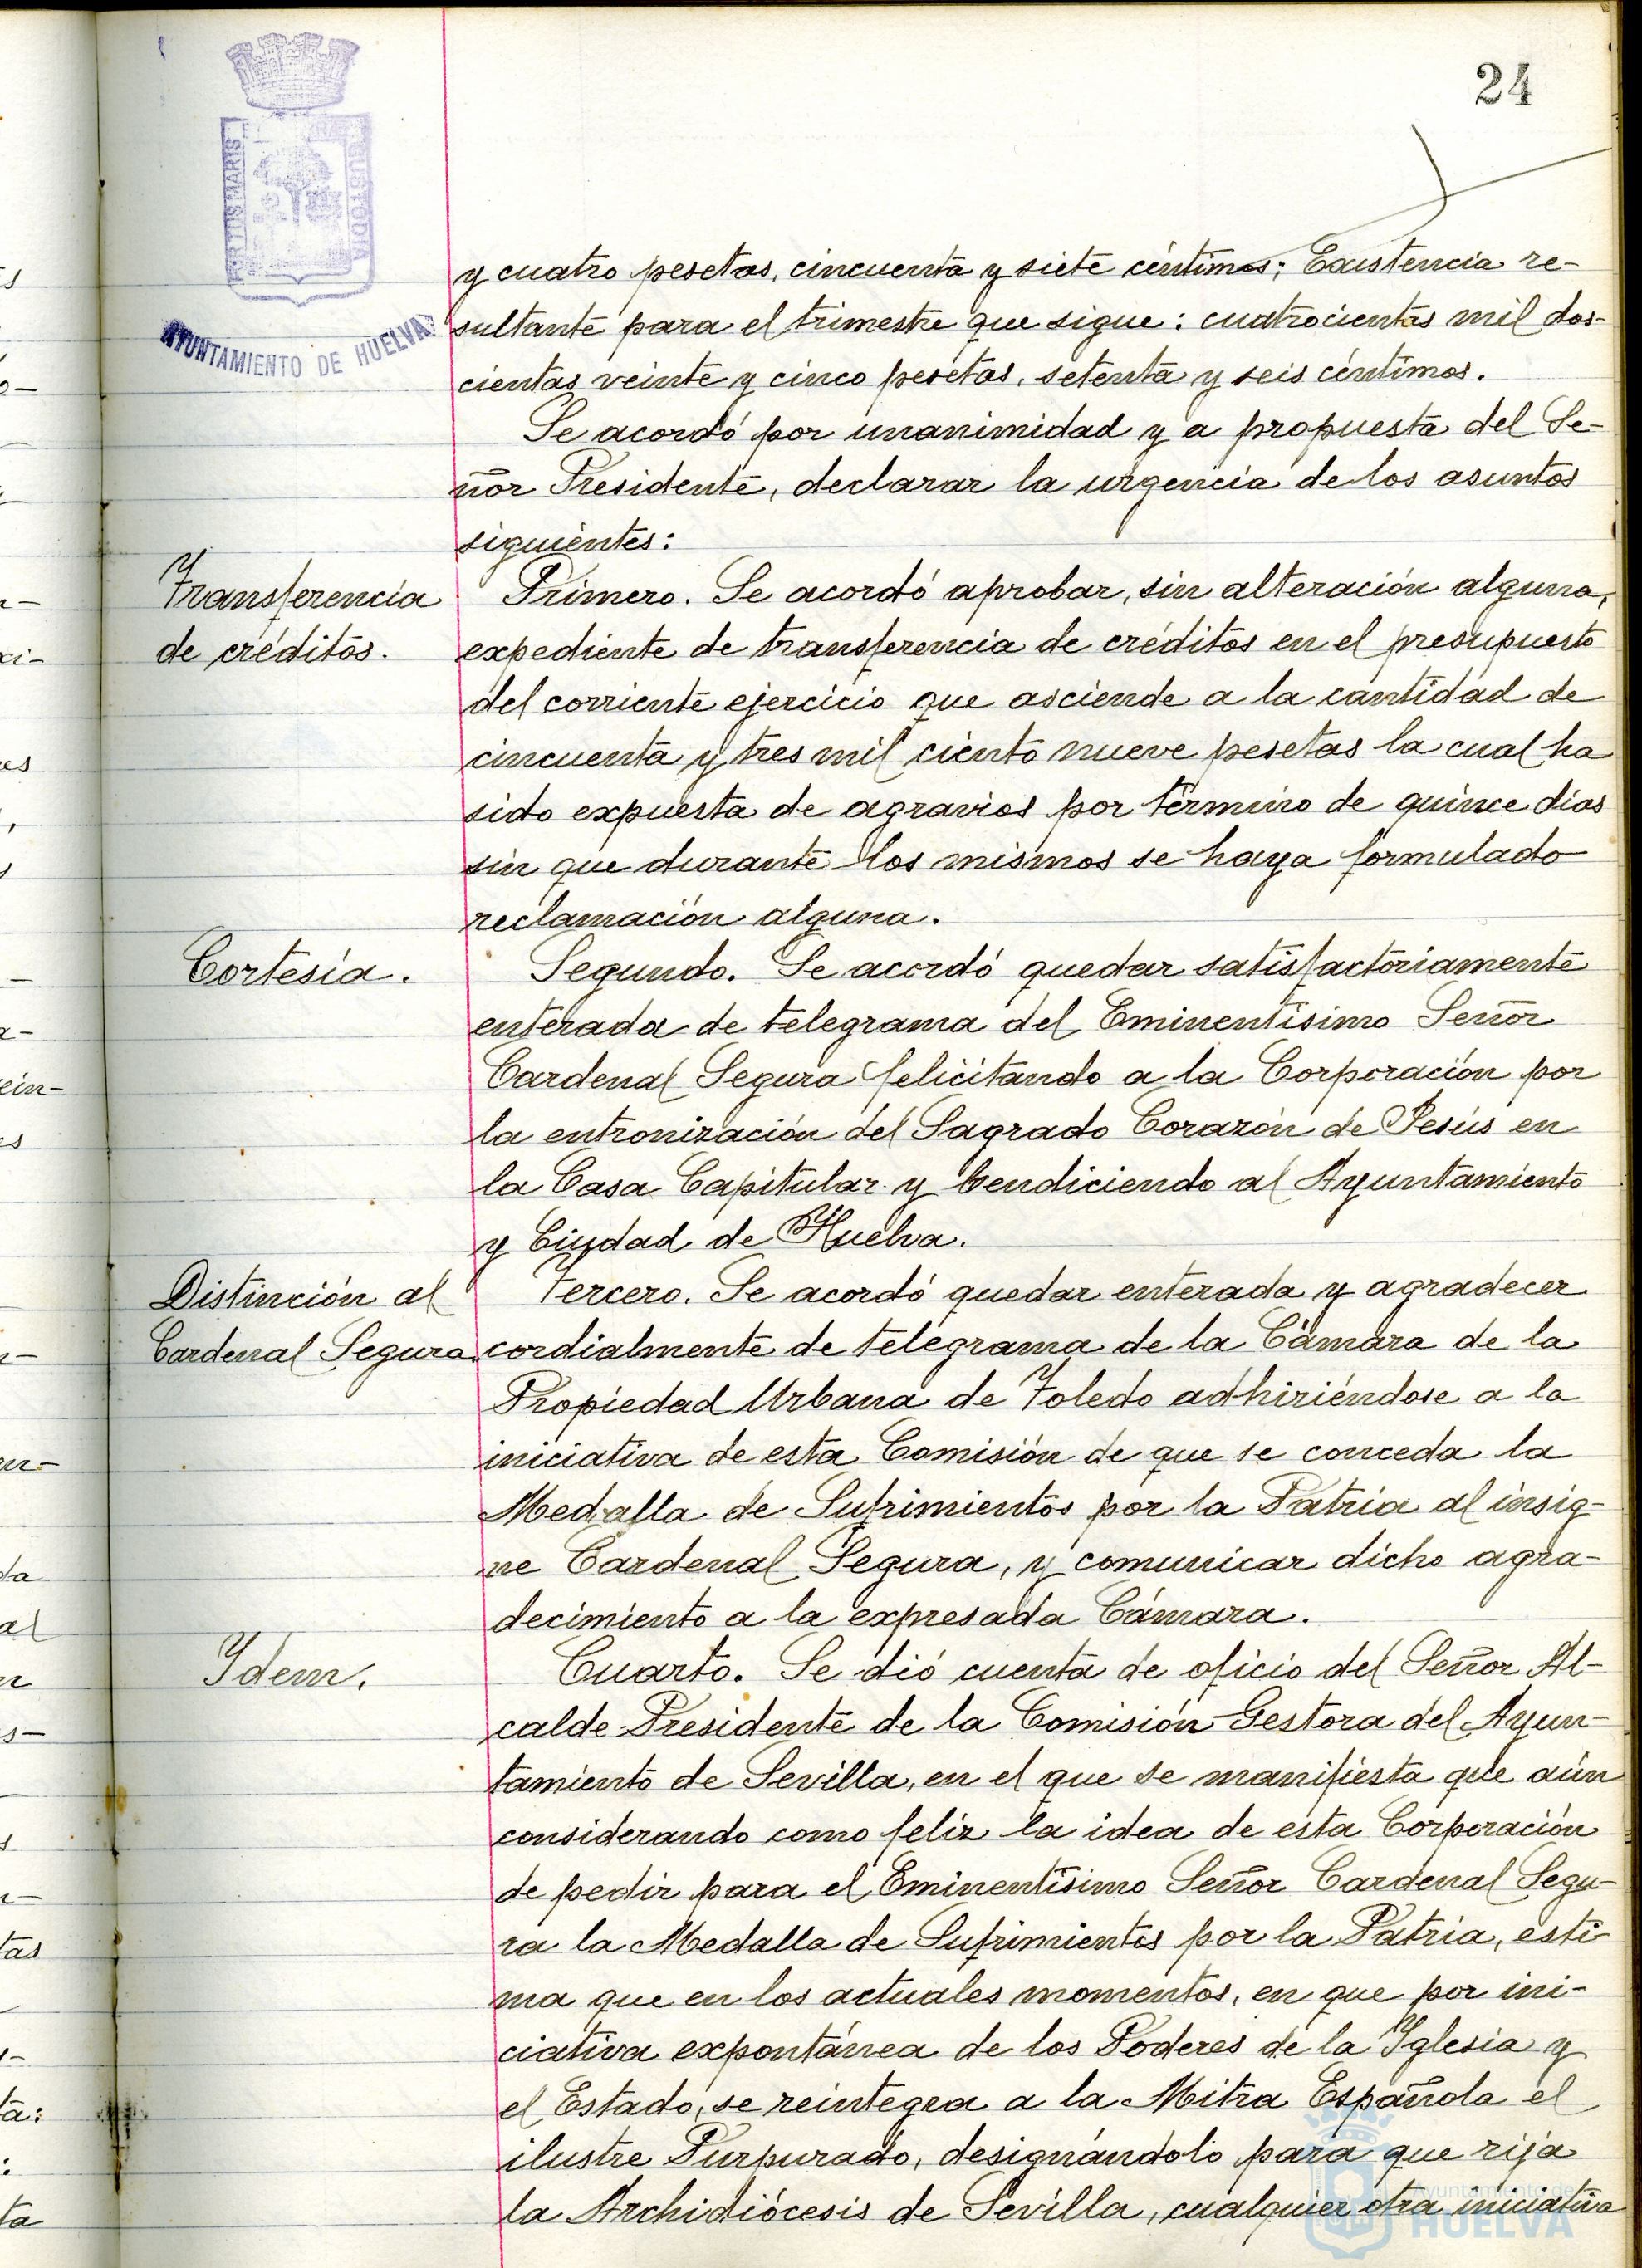 24
PORTUS MARIS ET TERRAE CUSTODIA
AYUNTAMIENTO DE HUELVA
y cuatro pesetas, cincuenta y siete céntimos; Existencia re-
sultante para el trimestre que sigue: cuatrocientas mil dos-
cientas veinte y cinco pesetas, setenta y seis céntimos.
Se acordó por unanimidad y a propuesta del Se-
ñor Presidente, declarar la urgencia de los asuntos
siguientes:
Transferencia
de créditos.
Primero. Se acordó aprobar, sin alteración alguna,
expediente de transferencia de créditos en el presupuesto
del corriente ejercicio que asciende a la cantidad de
cincuenta y tres mil ciento nueve pesetas la cual ha
sido expuesta de agravios por término de quince días
sin que durante los mismos se haya formulado
reclamación alguna.
Cortesía.
Segundo. Se acordó quedar satisfactoriamente
enterada de telegrama del Eminentísimo Señor
Cardenal Segura felicitando a la Corporación por
la entronización del Sagrado Corazón de Jesús en
la Casa Capitular y bendiciendo al Ayuntamiento
y Ciudad de Huelva.
Distinción al
Cardenal Segura
Tercero. Se acordó quedar enterada y agradecer
cordialmente de telegrama de la Cámara de la
Propiedad Urbana de Toledo adhiriéndose a la
iniciativa de esta Comisión de que se conceda la
Medalla de Sufrimientos por la Patria al insig-
ne Cardenal Segura, y comunicar dicho agra-
decimiento a la expresada Cámara.
Idem.
Cuarto. Se dió cuenta de oficio del Señor Al-
calde Presidente de la Comisión Gestora del Ayun-
tamiento de Sevilla, en el que se manifiesta que aún
considerando como feliz la idea de esta Corporación
de pedir para el Eminentísimo Señor Cardenal Segu-
ra la Medalla de Sufrimientos por la Patria, esti-
ma que en los actuales momentos, en que por ini-
ciativa expontánea de los Poderes de la Iglesia y
el Estado, se reintegra a la Mitra Española el
ilustre Purpurado, designándolo para que rija
la Archidiócesis de Sevilla, cualquier otra iniciativa
Ayuntamiento de
HUELVA